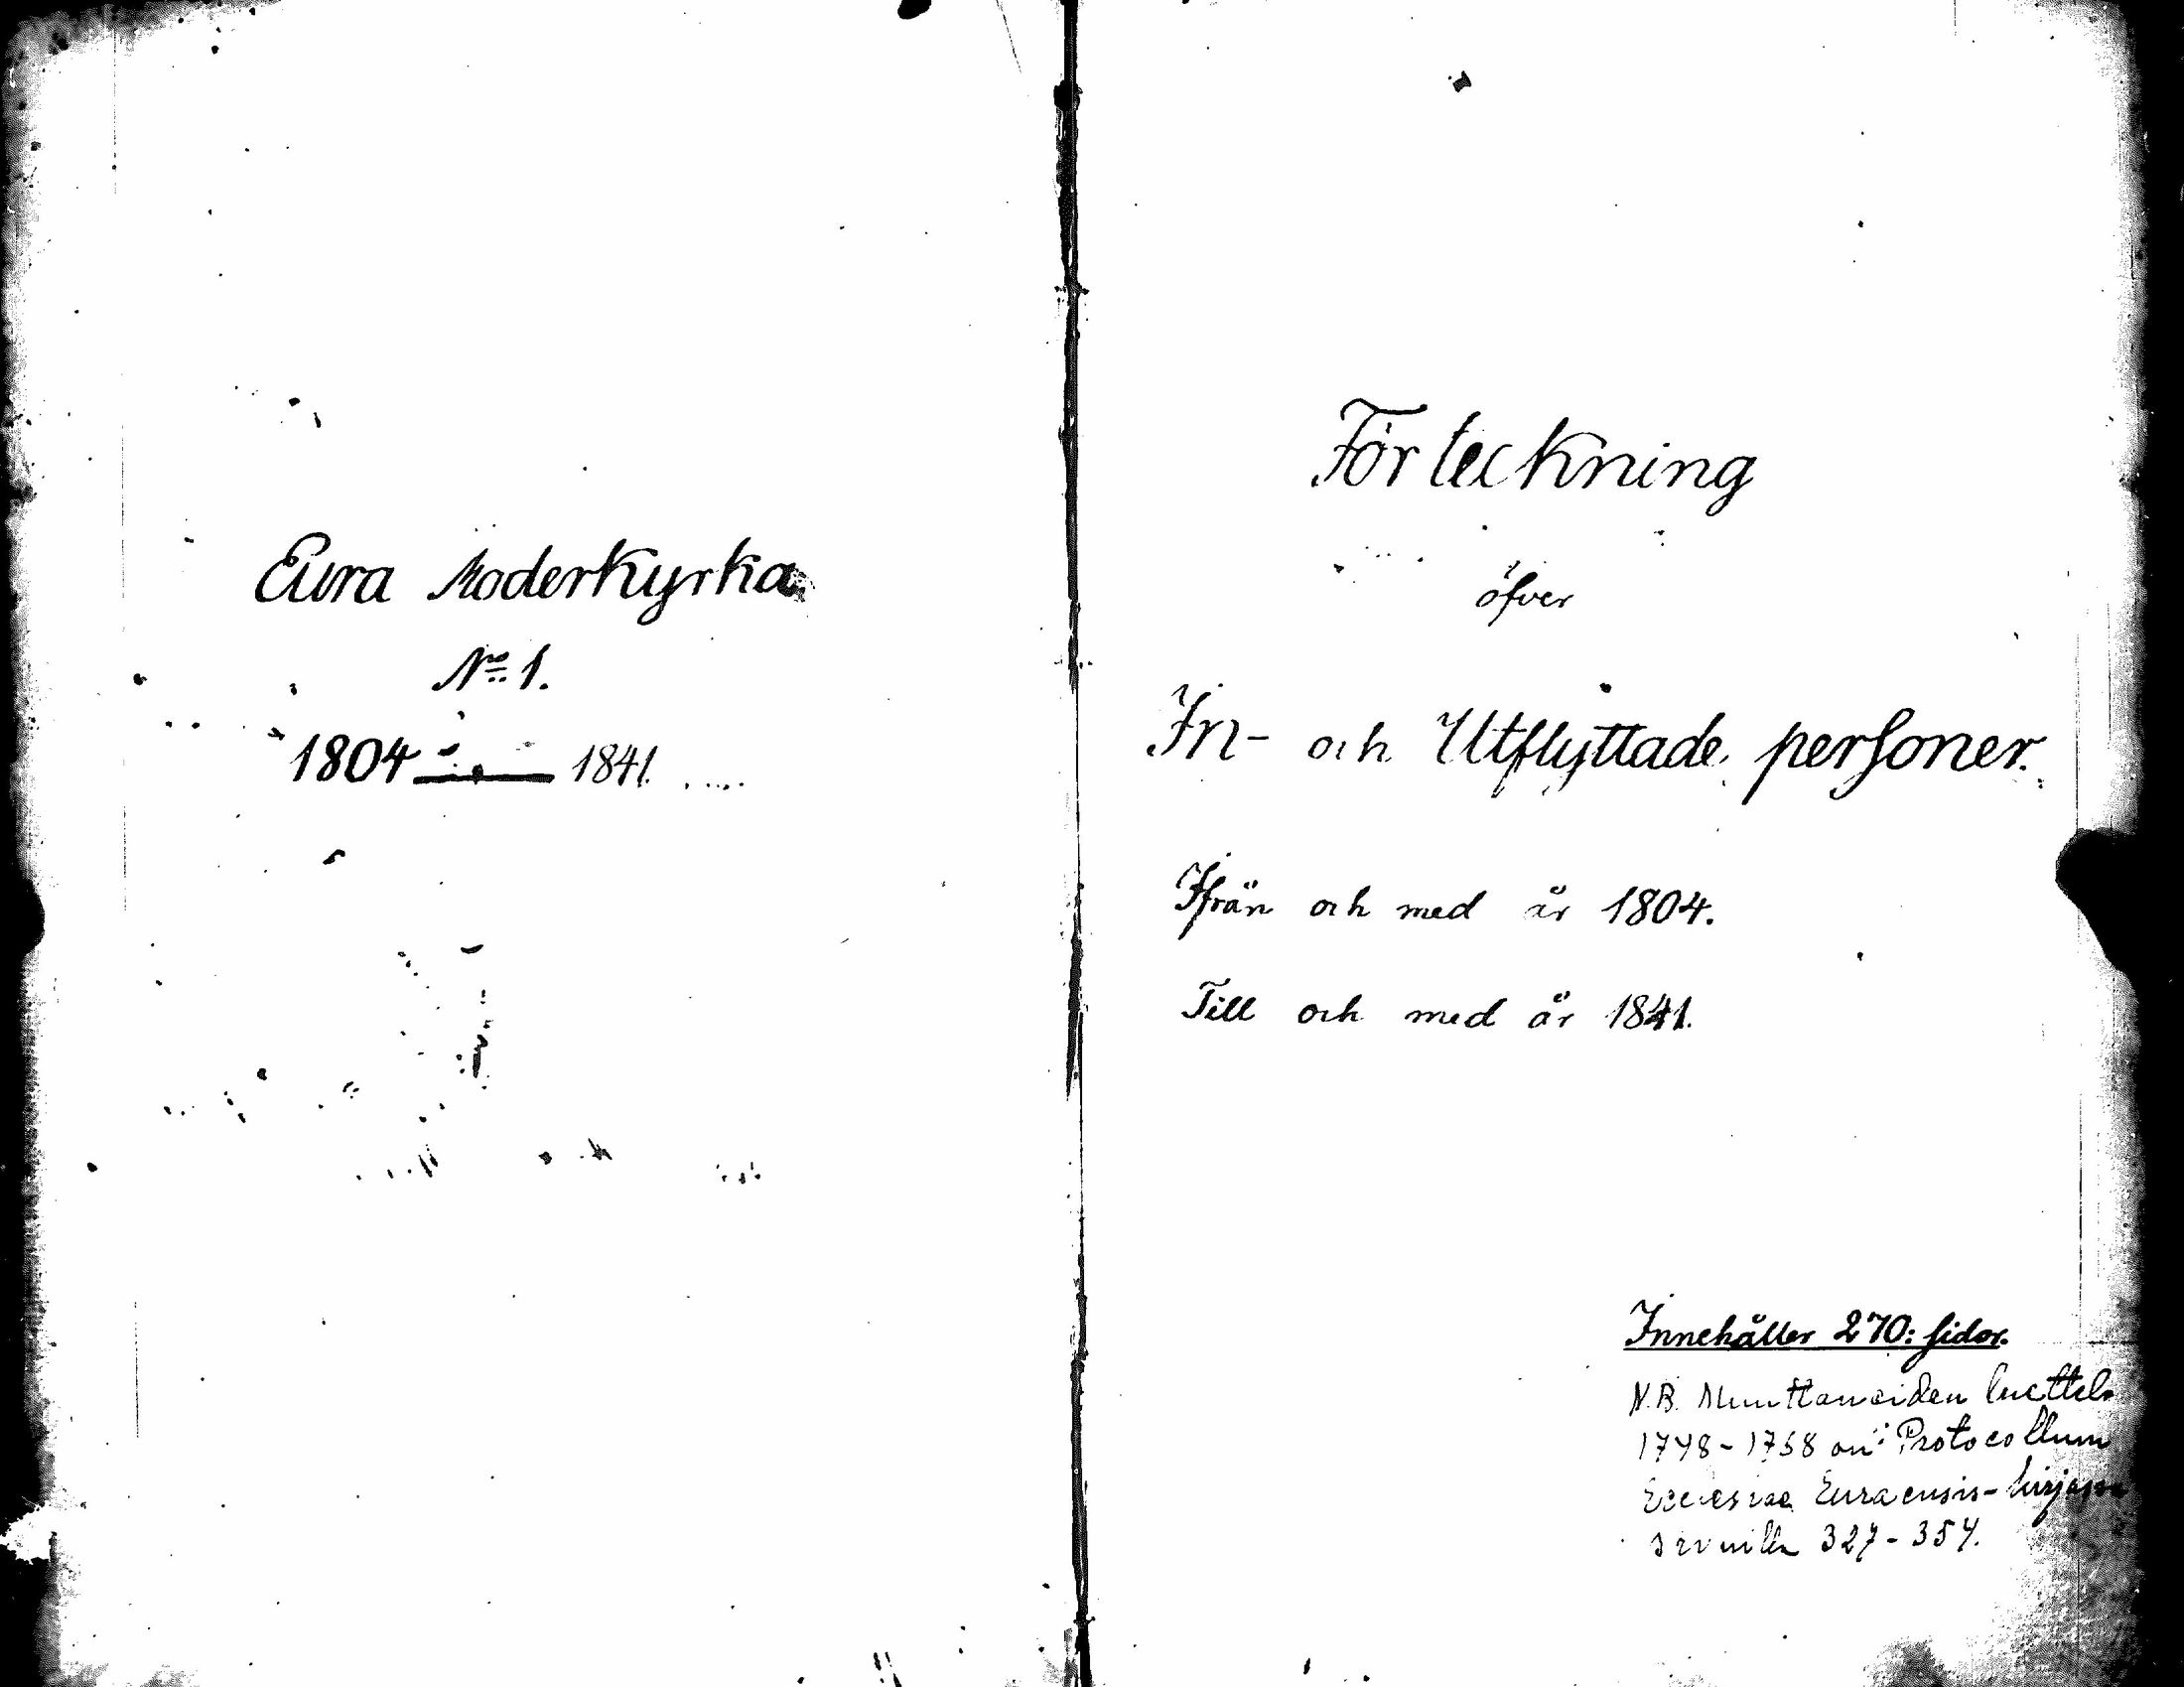 Eura Moderkyrka
No 1.
1804 — 1841.
Förteckning
öfver
In- och Utflyttade personer.
Ifrån och med år 1804.
Till och med år 1841.
Innehåller 270: sidor.
N.B. Muuttaneiden luettelo
1748-1758 on: Protocollum
Ecclesiae Euraensis-kirjassa
sivuilla 327-354.